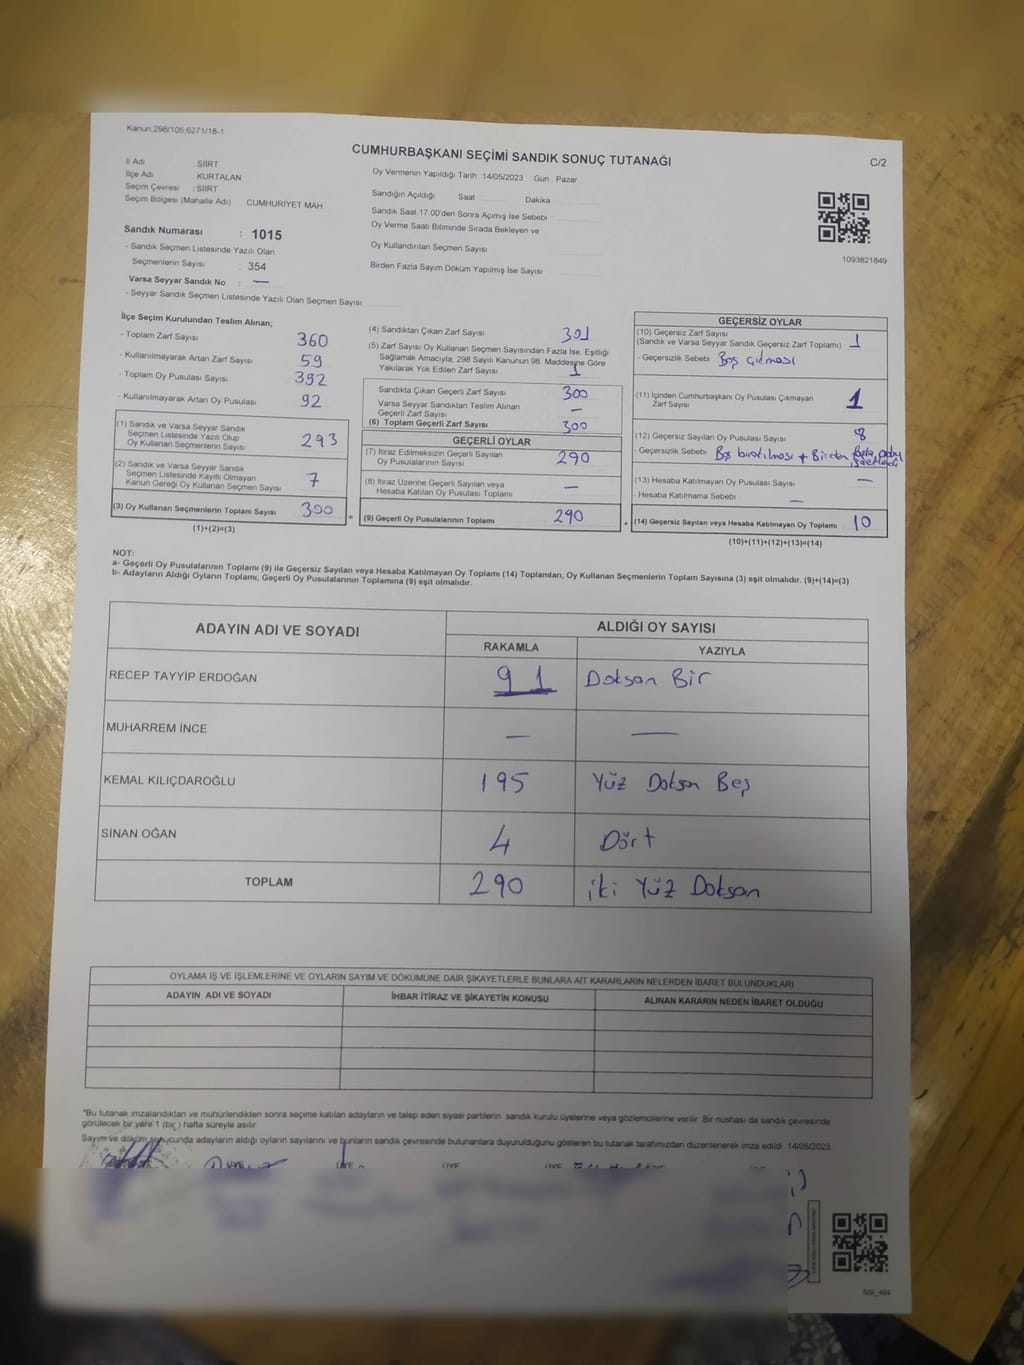 Kanun;298/105;6271/18-1
CUMHURBAŞKANI SEÇİMİ SANDIK SONUÇ TUTANAĞI
C/2
İl Adı : SİİRT
İlçe Adı : KURTALAN
Seçim Çevresi : SİİRT
Seçim Bölgesi (Mahalle Adı) : CUMHURİYET MAH.
Sandık Numarası : 1015
- Sandık Seçmen Listesinde Yazılı Olan
Seçmenlerin Sayısı : 354
Varsa Seyyar Sandık No : —
- Seyyar Sandık Seçmen Listesinde Yazılı Olan Seçmen Sayısı:
Oy Vermenin Yapıldığı Tarih 14/05/2023 Gün : Pazar
Sandığın Açıldığı Saat Dakika
Sandık Saat 17:00'den Sonra Açımış İse Sebebi
Oy Verme Saati Bitiminde Sırada Bekleyen ve
Oy Kullandırılan Seçmen Sayısı
Birden Fazla Sayım Döküm Yapılmış İse Sayısı
1093821849
İlçe Seçim Kurulundan Teslim Alınan;
- Toplam Zarf Sayısı 360
- Kullanılmayarak Artan Zarf Sayısı 59
- Toplam Oy Pusulası Sayısı 392
- Kullanılmayarak Artan Oy Pusulası 92
(1) Sandık ve Varsa Seyyar Sandık
Seçmen Listesinde Yazılı Olup
Oy Kullanan Seçmenlerin Sayısı 293
(2) Sandık ve Varsa Seyyar Sandık
Seçmen Listesinde Kayıtlı Olmayan
Kanun Gereği Oy Kullanan Seçmen Sayısı 7
(3) Oy Kullanan Seçmenlerin Toplam Sayısı 300
(1)+(2)=(3)
=
(4) Sandıktan Çıkan Zarf Sayısı 301
(5) Zarf Sayısı Oy Kullanan Seçmen Sayısından Fazla İse, Eşitliği
Sağlamak Amacıyla, 298 Sayılı Kanunun 98. Maddesine Göre
Yakılarak Yok Edilen Zarf Sayısı 1
Sandıkta Çıkan Geçerli Zarf Sayısı 300
Varsa Seyyar Sandıktan Teslim Alınan
Geçerli Zarf Sayısı —
(6) Toplam Geçerli Zarf Sayısı 300
GEÇERLİ OYLAR
(7) İtiraz Edilmeksizin Geçerli Sayılan
Oy Pusulalarının Sayısı 290
(8) İtiraz Üzerine Geçerli Sayılan veya
Hesaba Katılan Oy Pusulası Toplamı —
(9) Geçerli Oy Pusulalarının Toplamı 290
+
GEÇERSİZ OYLAR
(10) Geçersiz Zarf Sayısı
(Sandık ve Varsa Seyyar Sandık Geçersiz Zarf Toplamı) 1
- Geçersizlik Sebebi Boş çıkması
(11) İçinden Cumhurbaşkanı Oy Pusulası Çıkmayan
Zarf Sayısı 1
(12) Geçersiz Sayılan Oy Pusulası Sayısı 8
- Geçersizlik Sebebi Boş bırakılması + Birden fazla aday
(13) Hesaba Katılmayan Oy Pusulası Sayısı —
- Hesaba Katılmama Sebebi —
(14) Geçersiz Sayılan veya Hesaba Katılmayan Oy Toplamı 10
(10)+(11)+(12)+(13)=(14)
NOT:
a- Geçerli Oy Pusulalarının Toplamı (9) ile Geçersiz Sayılan veya Hesaba Katılmayan Oy Toplamı (14) Toplamları, Oy Kullanan Seçmenlerin Toplam Sayısına (3) eşit olmalıdır. (9)+(14)=(3)
b- Adayların Aldığı Oyların Toplamı, Geçerli Oy Pusulalarının Toplamına (9) eşit olmalıdır.
ADAYIN ADI VE SOYADI ALDIĞI OY SAYISI
RAKAMLA YAZIYLA
RECEP TAYYİP ERDOĞAN 91 Doksan Bir
MUHARREM İNCE — —
KEMAL KILIÇDAROĞLU 195 Yüz Doksan Beş
SİNAN OĞAN 4 Dört
TOPLAM 290 iki Yüz Doksan
OYLAMA İŞ VE İŞLEMLERİNE VE OYLARIN SAYIM VE DÖKÜMÜNE DAİR ŞİKAYETLERLE BUNLARA AİT KARARLARIN NELERDEN İBARET BULUNDUKLARI
ADAYIN ADI VE SOYADI İHBAR İTİRAZ VE ŞİKAYETİN KONUSU ALINAN KARARIN NEDEN İBARET OLDUĞU
*Bu tutanak imzalandıktan ve mühürlendikten sonra seçime katılan adayların ve talep eden siyasi partilerin sandık kurulu üyelerine veya gözlemcilerine verilir. Bir nüshası da sandık çevresinde
görülecek bir yere 1 (bir) hafta süreyle asılır.
Sayım ve döküm sonucunda adayların aldığı oyların sayılarını ve bunların sandık çevresinde bulunanlara duyurulduğunu gösteren bu tutanak tarafımızdan düzenlenerek imza edildi. 14/05/2023
ÜYE ÜYE ÜYE ÜYE